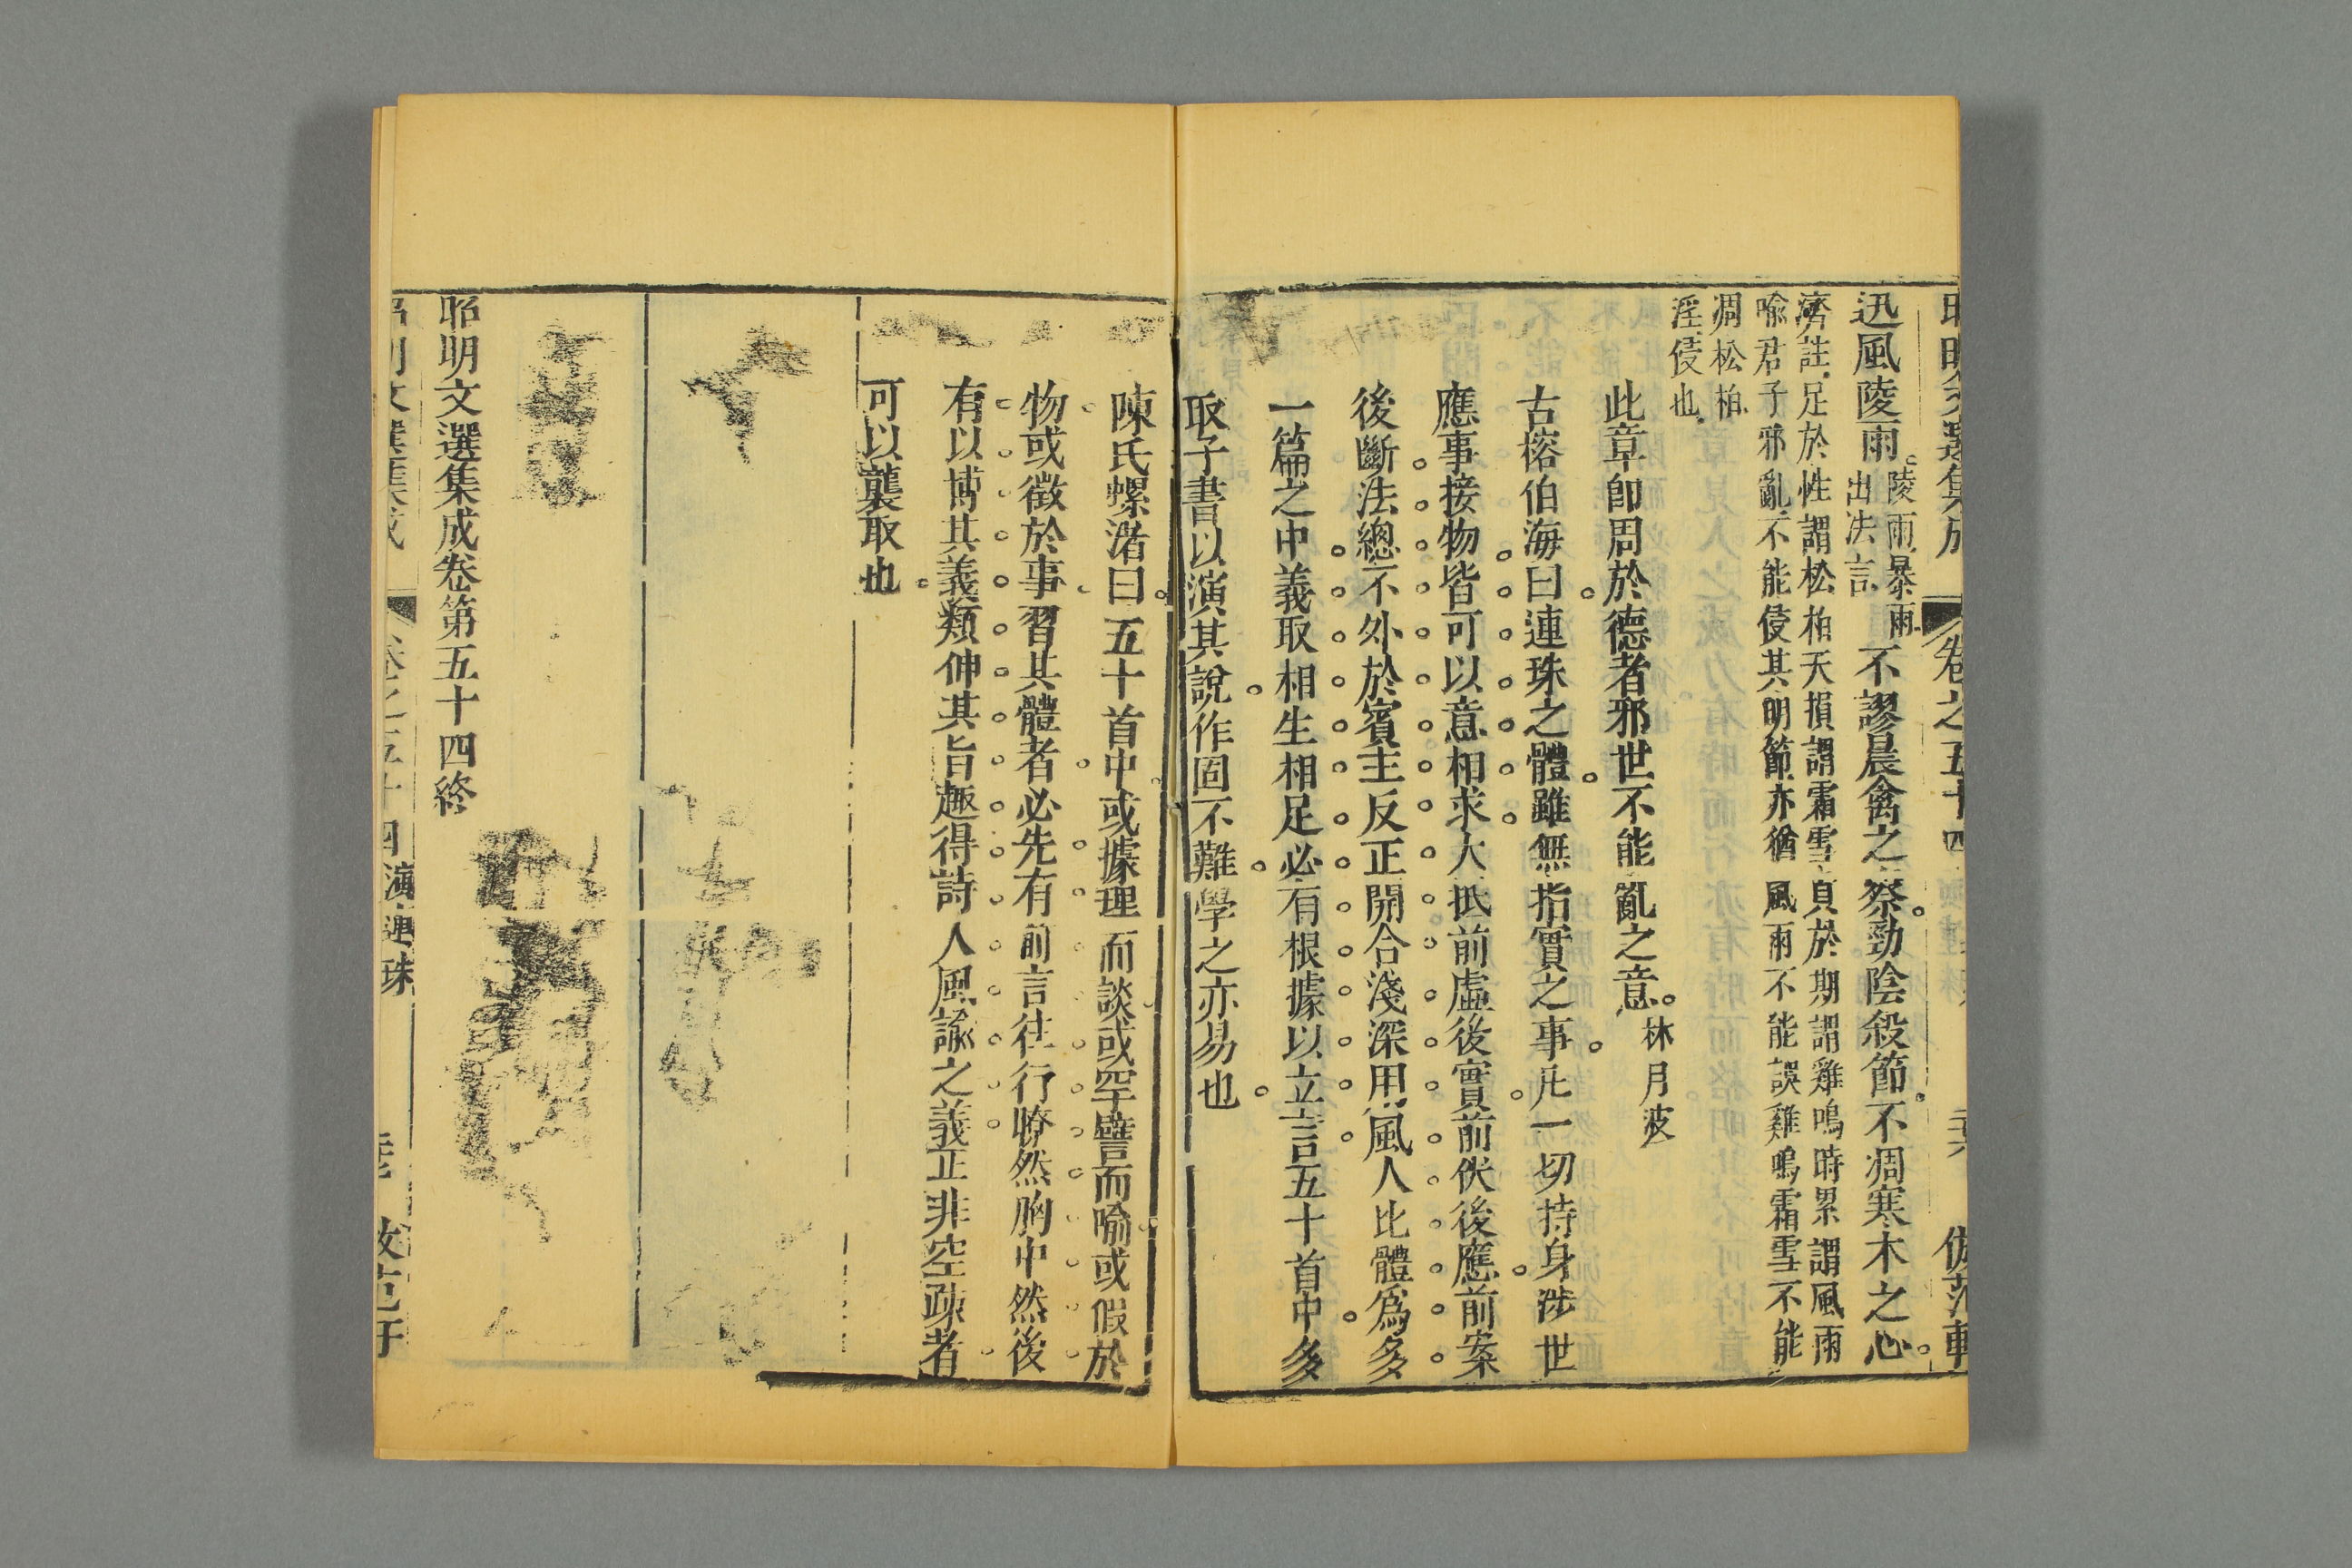 昭明文選集成 卷之五十四 演連珠 倣范軒
迅風陵雨陵雨暴雨出法言不謬晨禽之察勁陰殺節不凋寒木之心
濟註足於性謂松柏天損謂霜雪貞於期謂雞鳴時累謂風雨
喻君子邪亂不能侵其明節亦猶風雨不能誤雞鳴霜雪不能
凋松柏
淫侵也
此章卽周於德者邪世不能亂之意林月波
古榕伯海曰連珠之體雖無指實之事凡一切持身涉世
應事接物皆可以意相求大抵前虛後實前伏後應前案
後斷法總不外於賓主反正開合淺深用風人比體爲多
一篇之中義取相生相足必有根據以立言五十首中多
取子書以演其說作固不難學之亦易也
陳氏螺渚曰五十首中或據理而談或罕譬而喻或假於
物或徵於事習其體者必先有前言往行瞭然胸中然後
有以博其義類伸其旨趣得詩人風諭之義正非空疎者
可以襲取也
昭明文選集成卷第五十四終
昭明文選集成 卷之五十四 演連珠